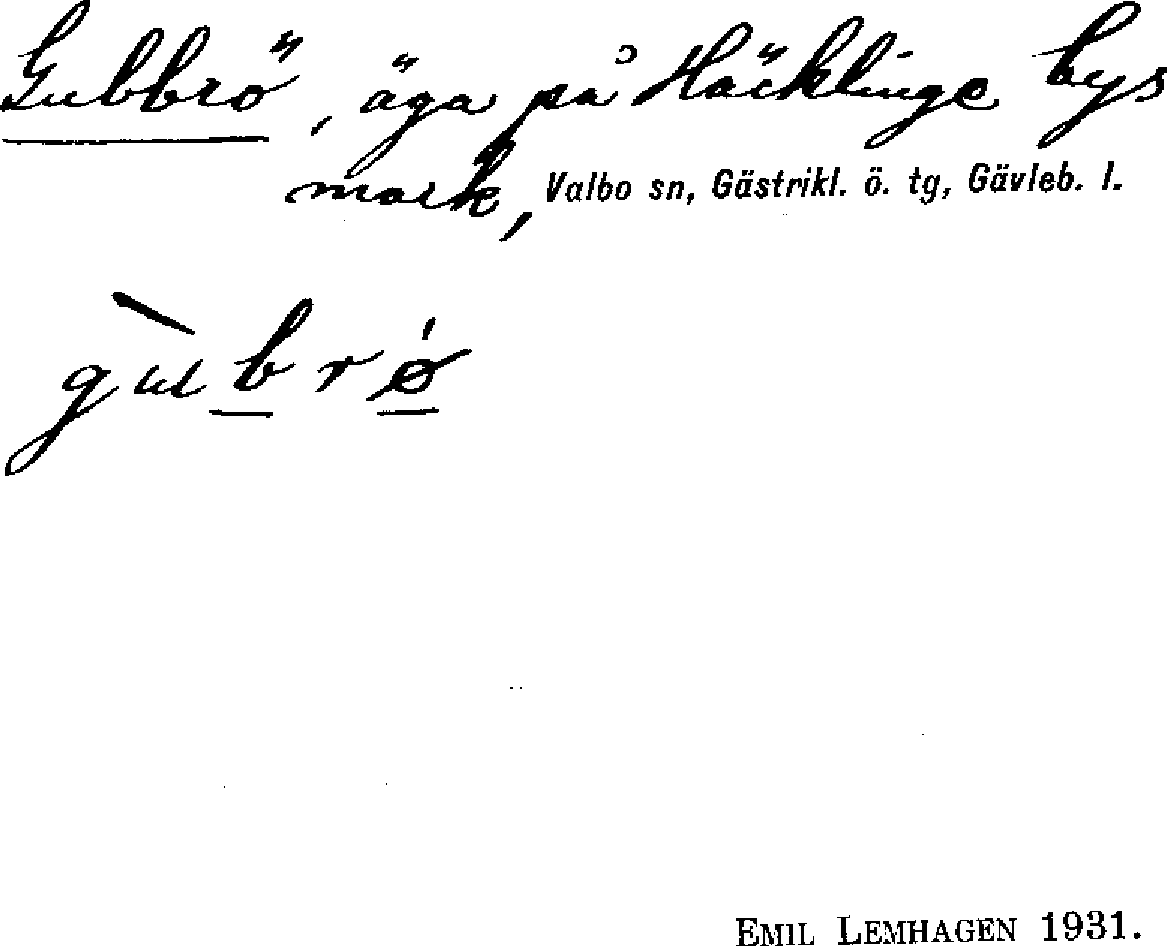 Gubbrö, äga på Häcklinge bys
mark, Valbo sn, Gästrikl. ö. tg, Gävleb. l.
gùbrǿ
EMIL LEMHAGEN 1931.